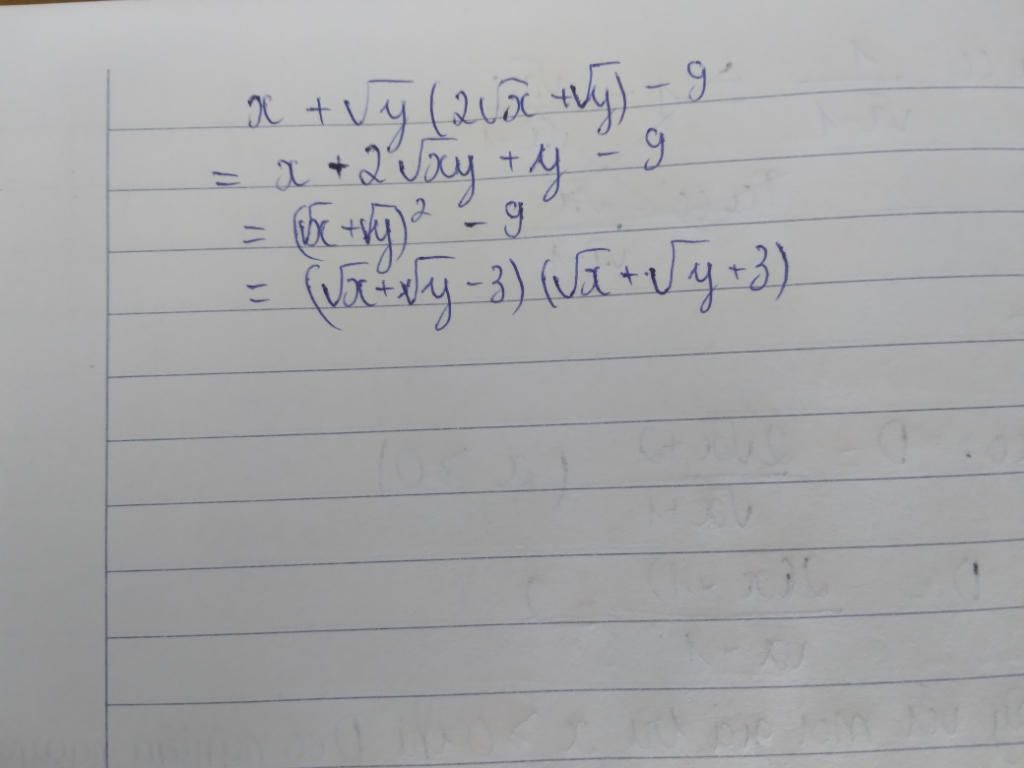 x + √y (2√x + √y) - 9
= x + 2√xy + y - 9
= (√x + √y)² - 9
= (√x + √y - 3) (√x + √y + 3)